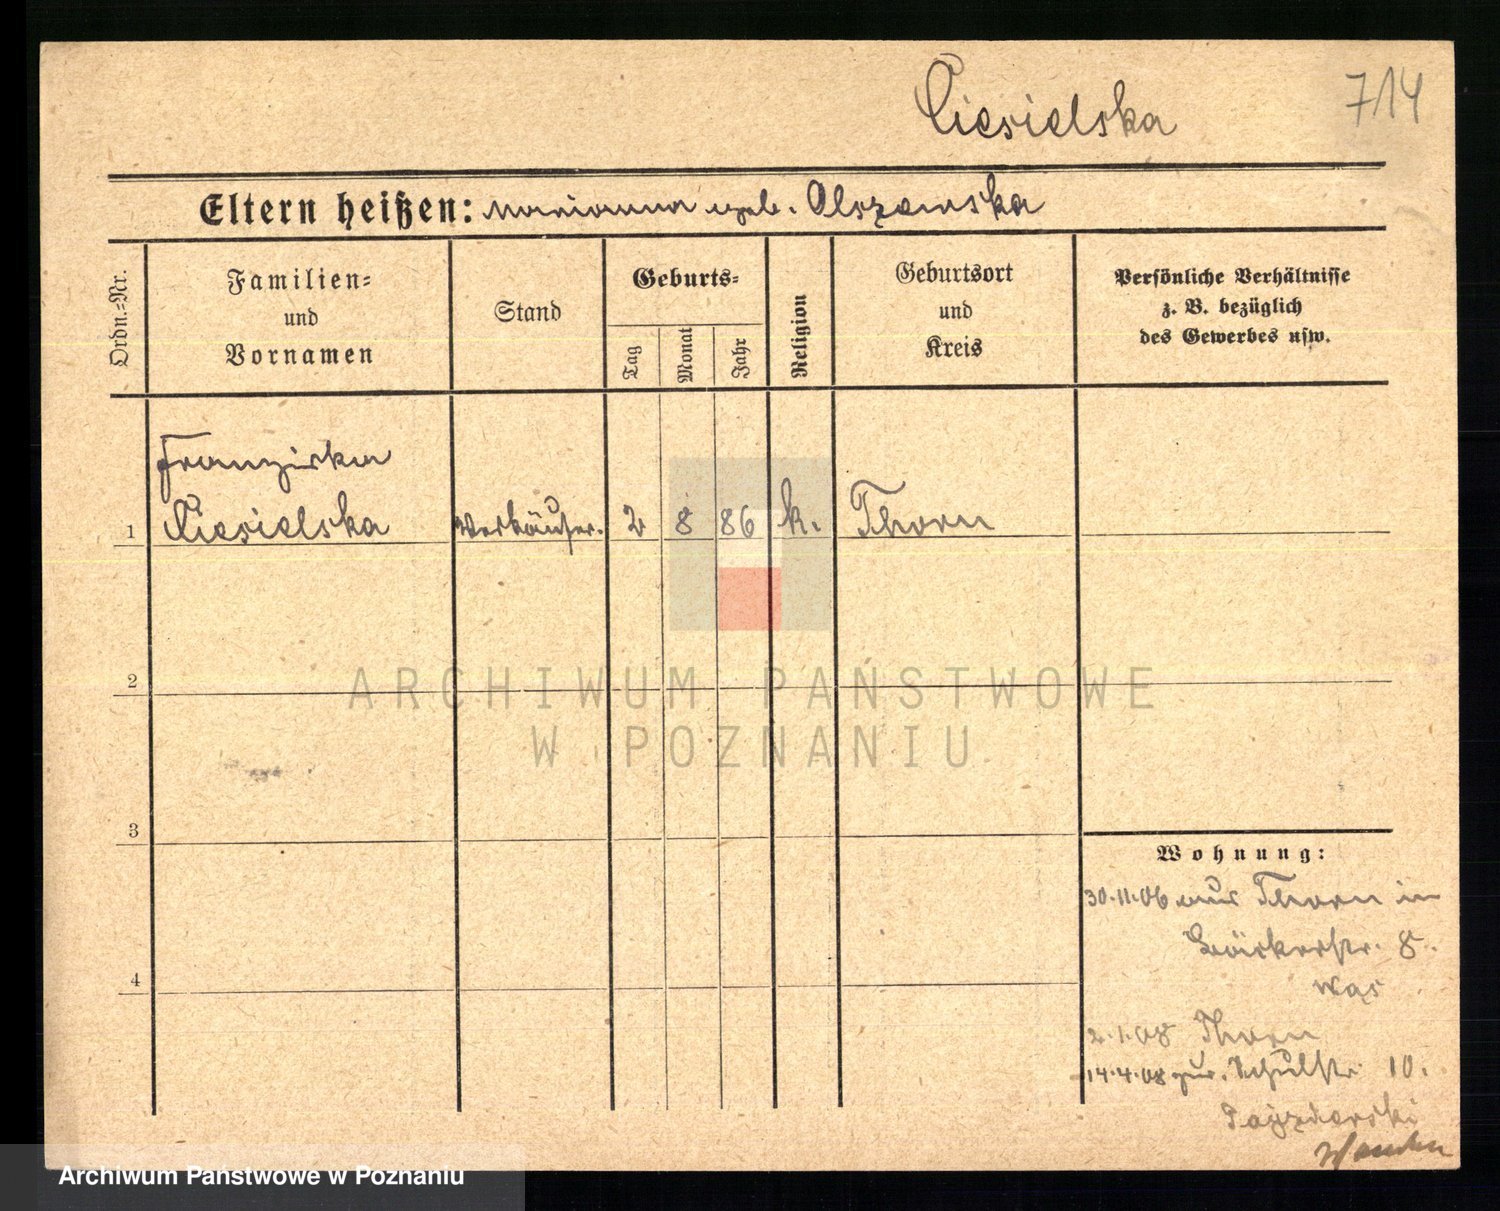 Ciesielska
714
Eltern heißen: Marianna geb. Olszewska
Ordn.-Nr.
Familien-
und
Vornamen
Stand
Geburts-
Tag
Monat
Jahr
Religion
Geburtsort
und
Kreis
Persönliche Verhältnisse
z. B. bezüglich
des Gewerbes usw.
Franziska
1 Ciesielska Verkäufer. 2 8 86 k. Thorn
2
ARCHIWUM PAŃSTWOWE
W POZNANIU
3
Wohnung:
30.11.06 aus Thorn in
8.
4
2.1.08 Thorn
14.4.08 zur. Schulstr. 10.
Archiwum Państwowe w Poznaniu